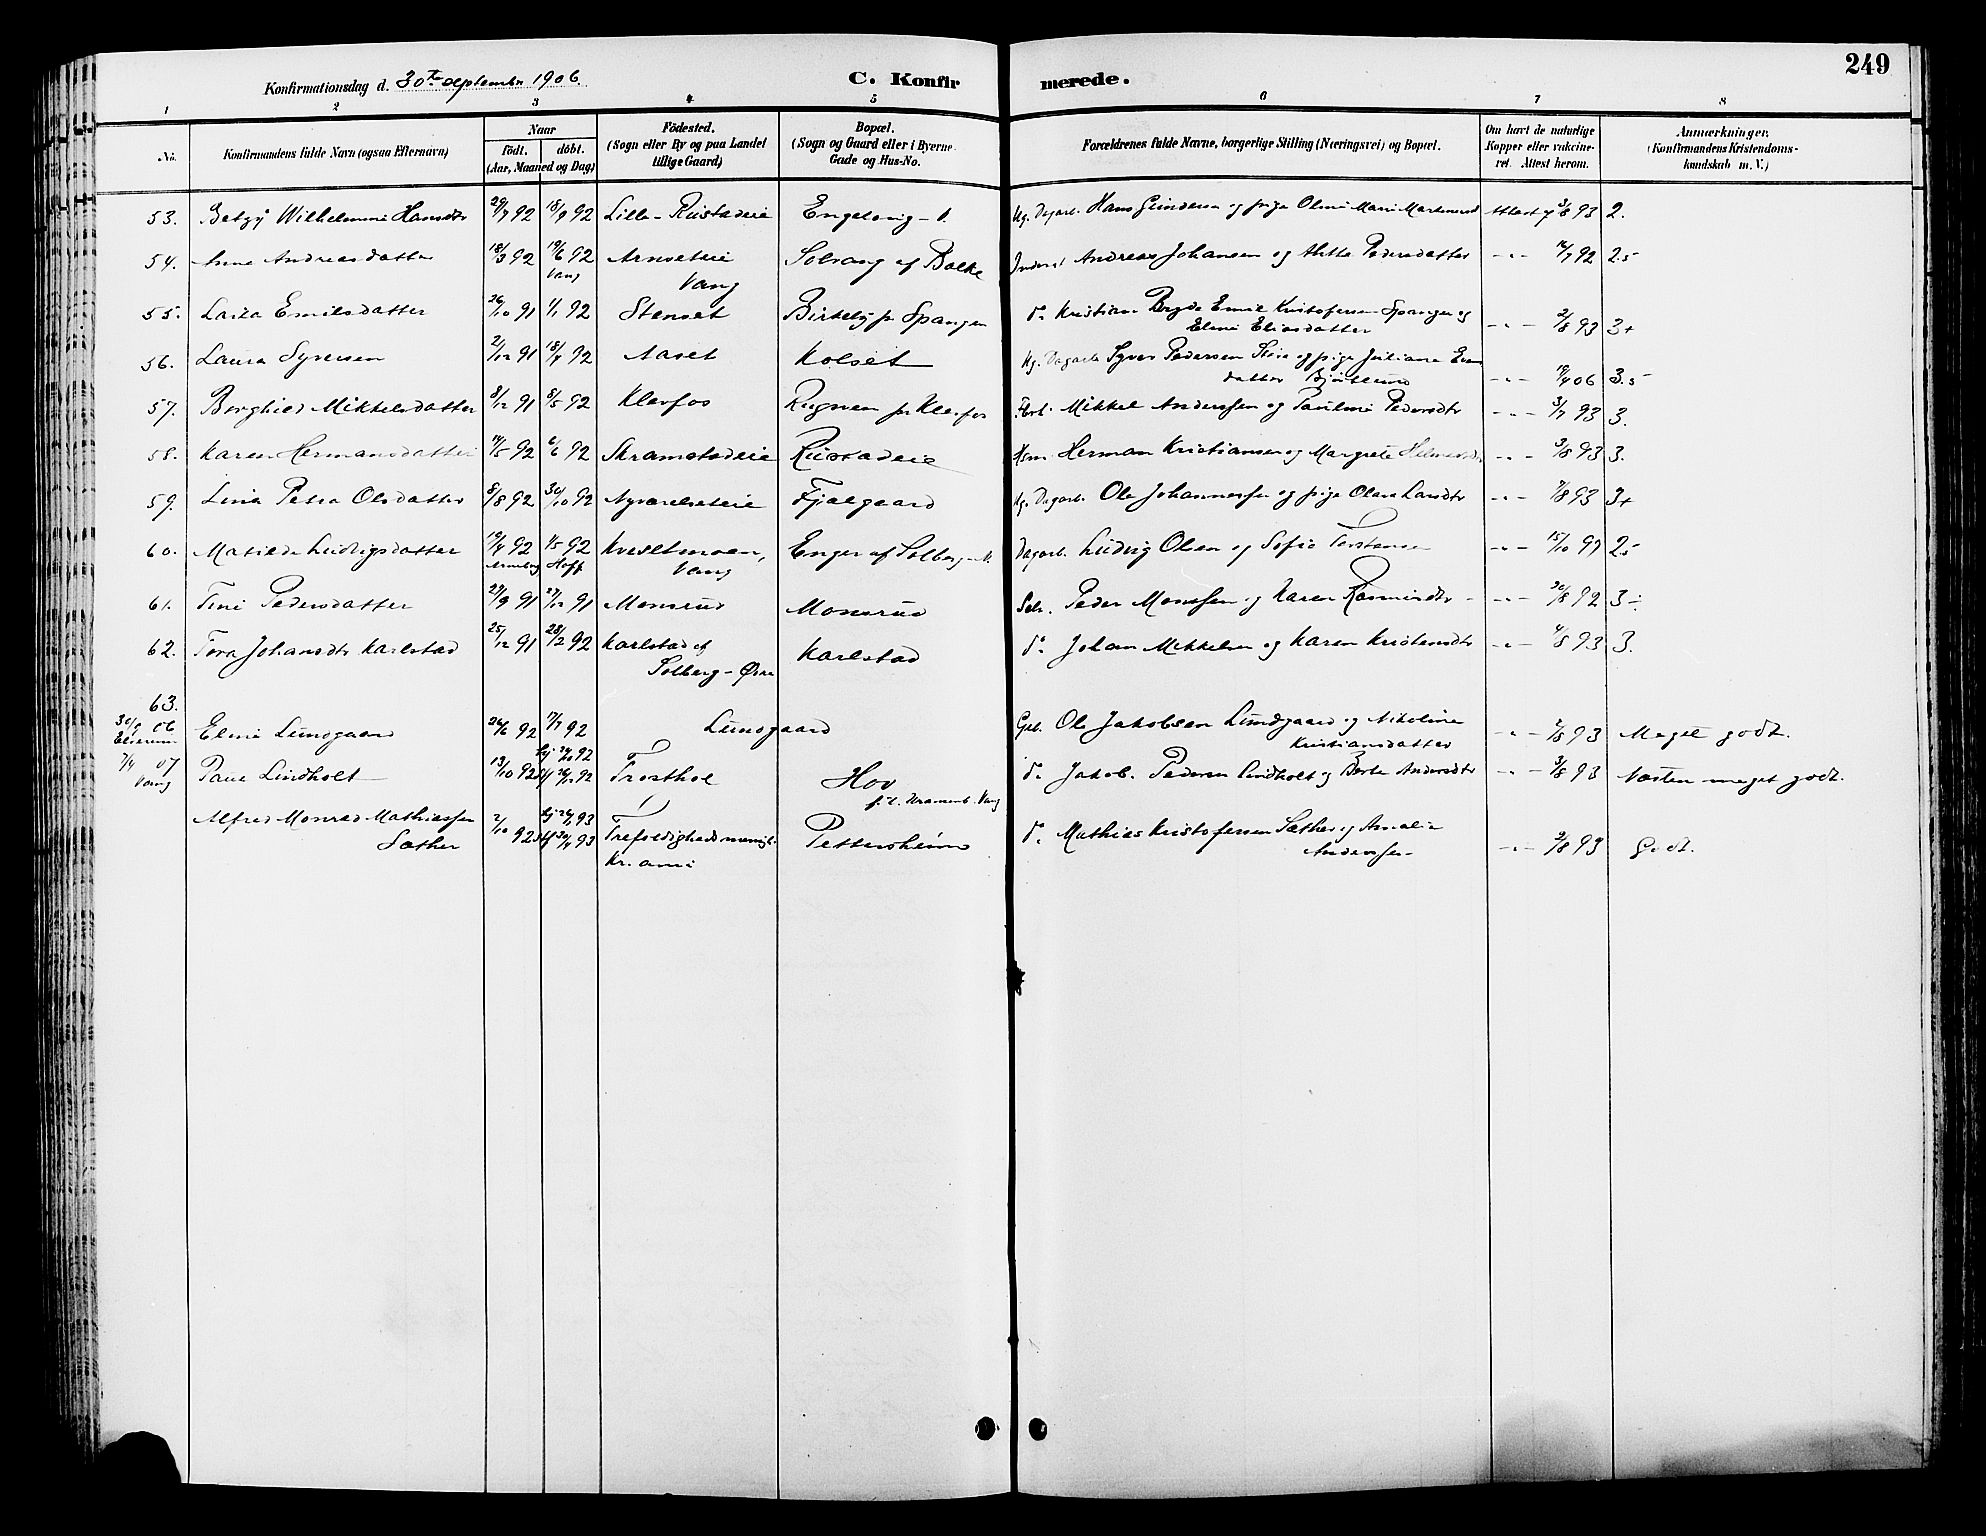 249
Konfirmationsdag d. 30te september 1906. C. Konfirmerede.
1 2 3 4 5 6 7 8
No. Konfirmandens fulde Navn (ogsaa Efternavn) Naar Födt. döbt. (Aar, Maaned og Dag) Födested. (Sogn eller By og paa Landet tillige Gaard) Bopæl. (Sogn og Gaard eller i Byerne Gade og Hus-No. Forældrenes fulde Navne, borgerlige Stilling (Næringsvei) og Bopæl. Om havt de naturlige Kopper eller vakcineret. Attest herom. Anmærkninger. (Konfirmandens Kristendomskundskab m. V.)
53. Betzy Wilhelmine Hansdtr 29/7 92 18/9 92 Lille-Rustadeie Engelovig - Dagarb. Hans og pige Oline Marie Attest af 3/8 93 2.
54. Anne Andreasdatter 18/3 92 19/6 92 Arnseteie Solvang af Balke Inders. Andreas Johansen og Pedersdatter -"- 16/7 92 2.5
Vang Vang
55. Laila Emilsdatter 26/10 91 1/1 92 Stenset Birkely fr Spangen do Kristian Emil Kristofersen Spangen og
Eline Eliasdatter -"- 2/8 93 3+
56. Laura Syversen 2/12 91 18/4 92 Aaset Kolset Dagarb. Syver Pedersen og pige Juliane Even
datter -"- 19/4 06 3.5
57. Borghild Mikkelsdatter 8/12 91 8/5 92 Klevfos fr Klevfos Mikkel Anderssen og Pauline Pedersdtr -"- 3/7 93 3.
58. Karen Hermansdatter 14/5 92 6/6 92 Skramstadeie Rustadeie Hsm. Herman Kristiansen og Margrete -"- 3/8 93 3.
59. Lina Petra Olsdatter 8/8 92 30/10 92 Fjælgaard Dagarb. Ole Johannessen og pige Olava Larsdtr -"- 7/8 93 3+
60. Matilde Ludvigsdatter 19/4 92 1/5 92 Kveslmoen, Enger af Solberg Dagarb. Ludvig Olsen og Sofie Torstensen -"- 15/10 97 2.5
Hoff Vang
61. Tine Pedersdatter 29/9 91 27/12 91 Monsrud Monsrud Selv. Peder Monssen og Karen -"- 20/8 92 3÷
62. Tora Johansdtr Karlstad 25/12 91 28/2 92 Karlstad af Karlstad do Johan Mikkelsen og Karen Kristensdtr -"- 4/8 93 3.
Solberg-Øvre
63.
30/9 06 Elverum Eline Lundgaard 26/6 92 17/7 92 Lundgaard Gbr. Ole Jakobsen Lundgaard og Nikoline
Kristiansdatter -"- 2/8 93 Meget godt.
7/4 07 Vang Paul Lindholt 13/10 92 Trosthol Hov do Jakob Pedersen Lindholt og Berte Andersdtr -"- 3/8 93 Næsten meget godt.
Vang
Alfred Monrad Mathiassen 2/10 92 Trefoldighedsmenigh. Pettersheim do Mathias Kristofersen Sæther og Amalie
Sæther Kr.ania Anderssen -"- 2/8 93 Godt.